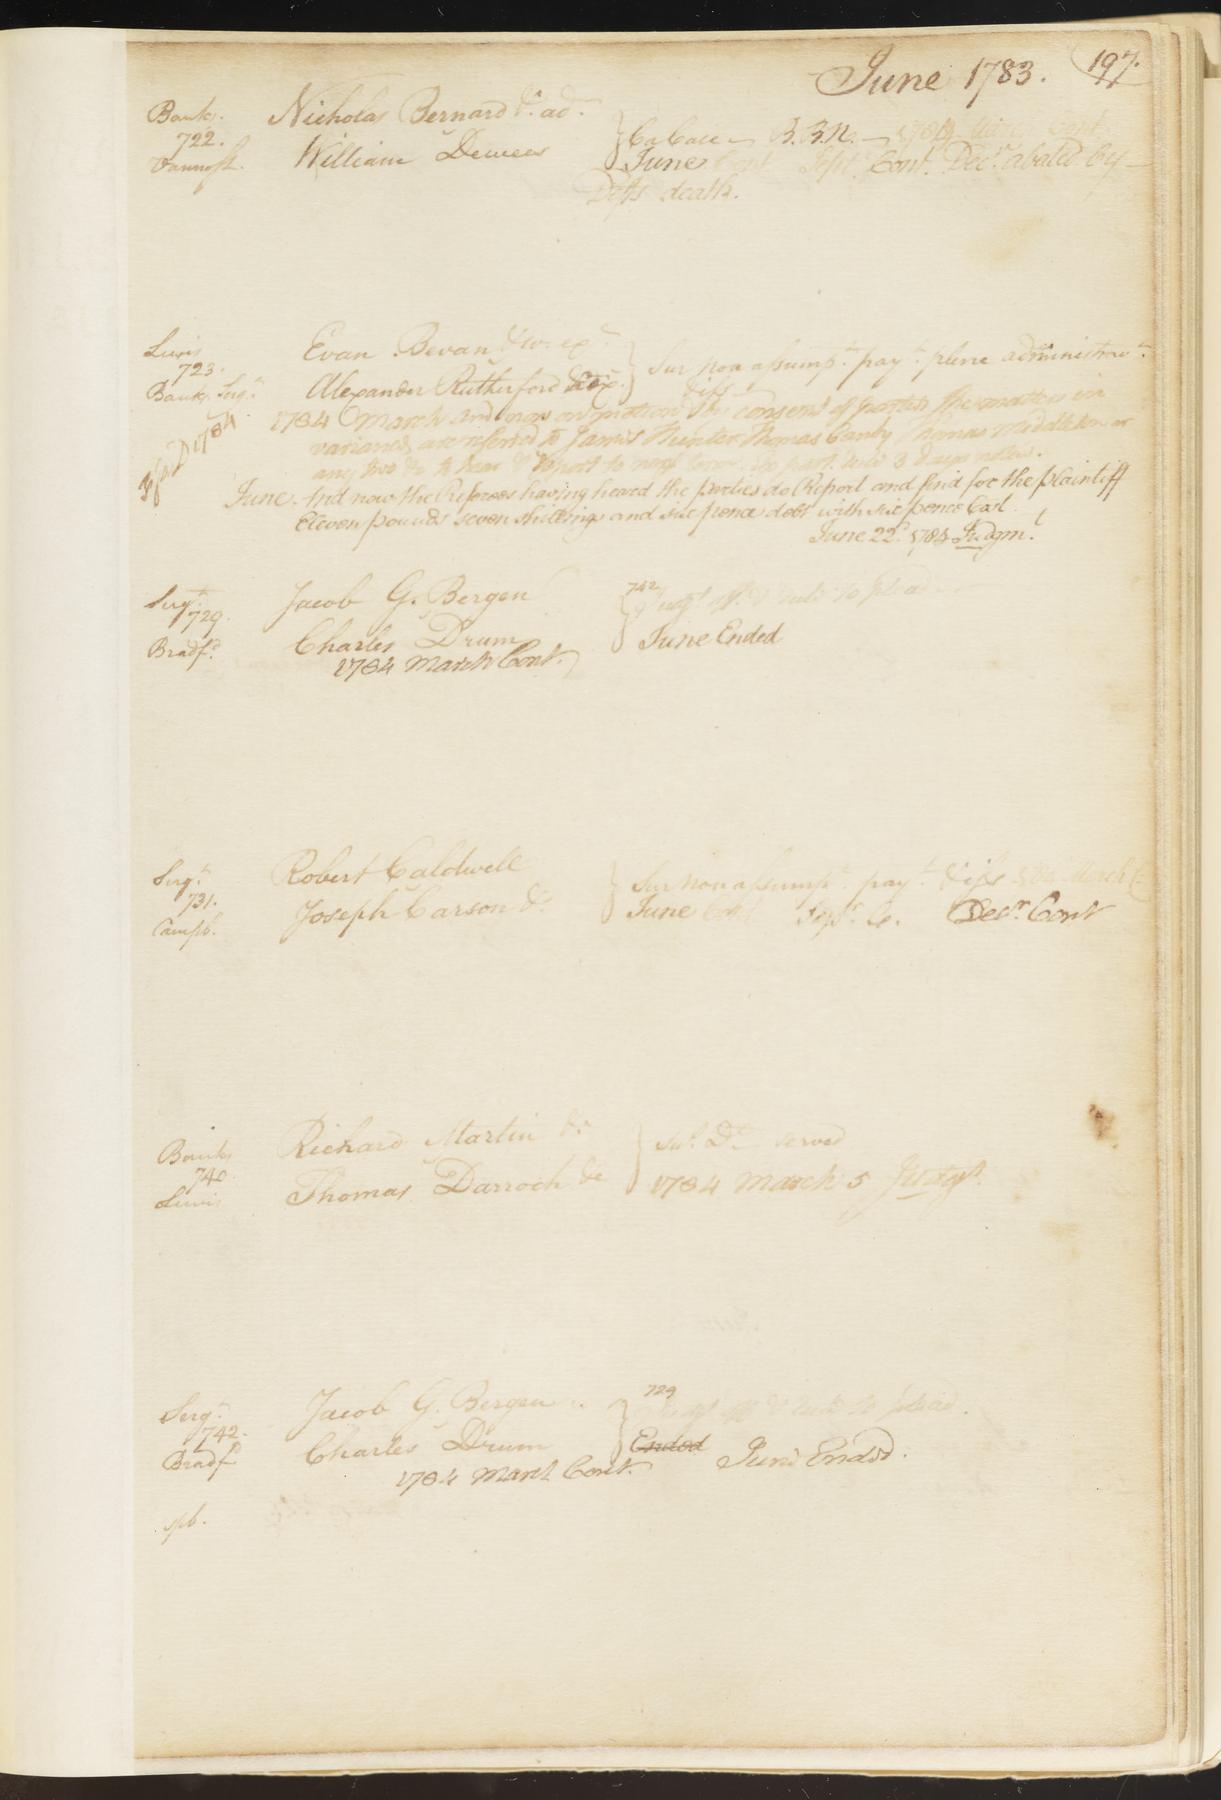 June 1783. 197.
Bank.
722.
Vannost.
Nicholas Bernard &c. ad.
William Dewees
Ca Case B.B.N. 1784 Cont
June Cont Sept. Cont. Decr. abated by
Defts death.
Lewis
723.
Bank Serg.t
Evan Bevan & ux exr.
Alexander Rutherford
Sur non assumpt. payt. plene administravt.
Issd
1784 March And now on motion & by consent of parties the matters in
variance are referred to James Hunter Thomas Canby Thomas Middleton or
any two &c to hear & report to next term. Ex parte rule 3 days notice.
June. And now the Referees having heard the parties do Report and find for the plaintiff
Eleven pounds seven shillings and six pence debt with six pence Cost.
June 22d. 1784 Judgmt.
Sergt.
729.
Bradfd.
Jacob G. Bergen
Charles Drum
1784 March Cont.
742
Judgt & rule to plead
June Ended
Sergt.
731.
Campb.
Robert Caldwell
Joseph Carson &c.
Sur non assumpt. payt. & iss 1784 March C.
June Cont Sepr. C. Decr. Cont
Bank
740.
Lewis
Richard Martin &c
Thomas Darroch &c
served
1784 March 5 Judgt.
Sergt.
742.
Bradf
Jacob G. Bergen
Charles Drum
1784 March Cont.
729
& rule to plead.
Ended June Ended.